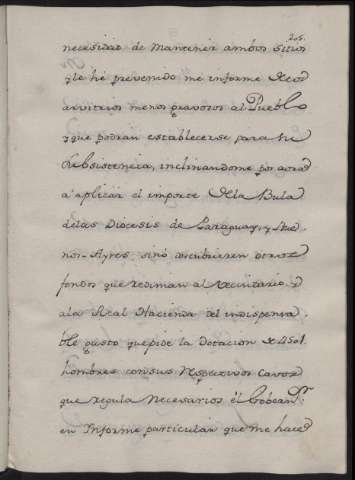 205.
necesidad de mantener ambos sitios
y le hè prevenido me informe de los
arvitrios menos gravosos al Pueblo
que podran establecerse para su
subsistencia, inclinandome por aora
a aplicar el importe de la Bula
de las Diocesis de Paraguay, y Bue
nos-Ayres, sinò descubrieren otros
fondos que rediman al vecindario y
ala Real Hacienda del indispensa
ble gasto que pide la Dotacion de 450
hombres con sus respectivos cavos
que regula necesarios èl Governr.
en Informe particular que me hace